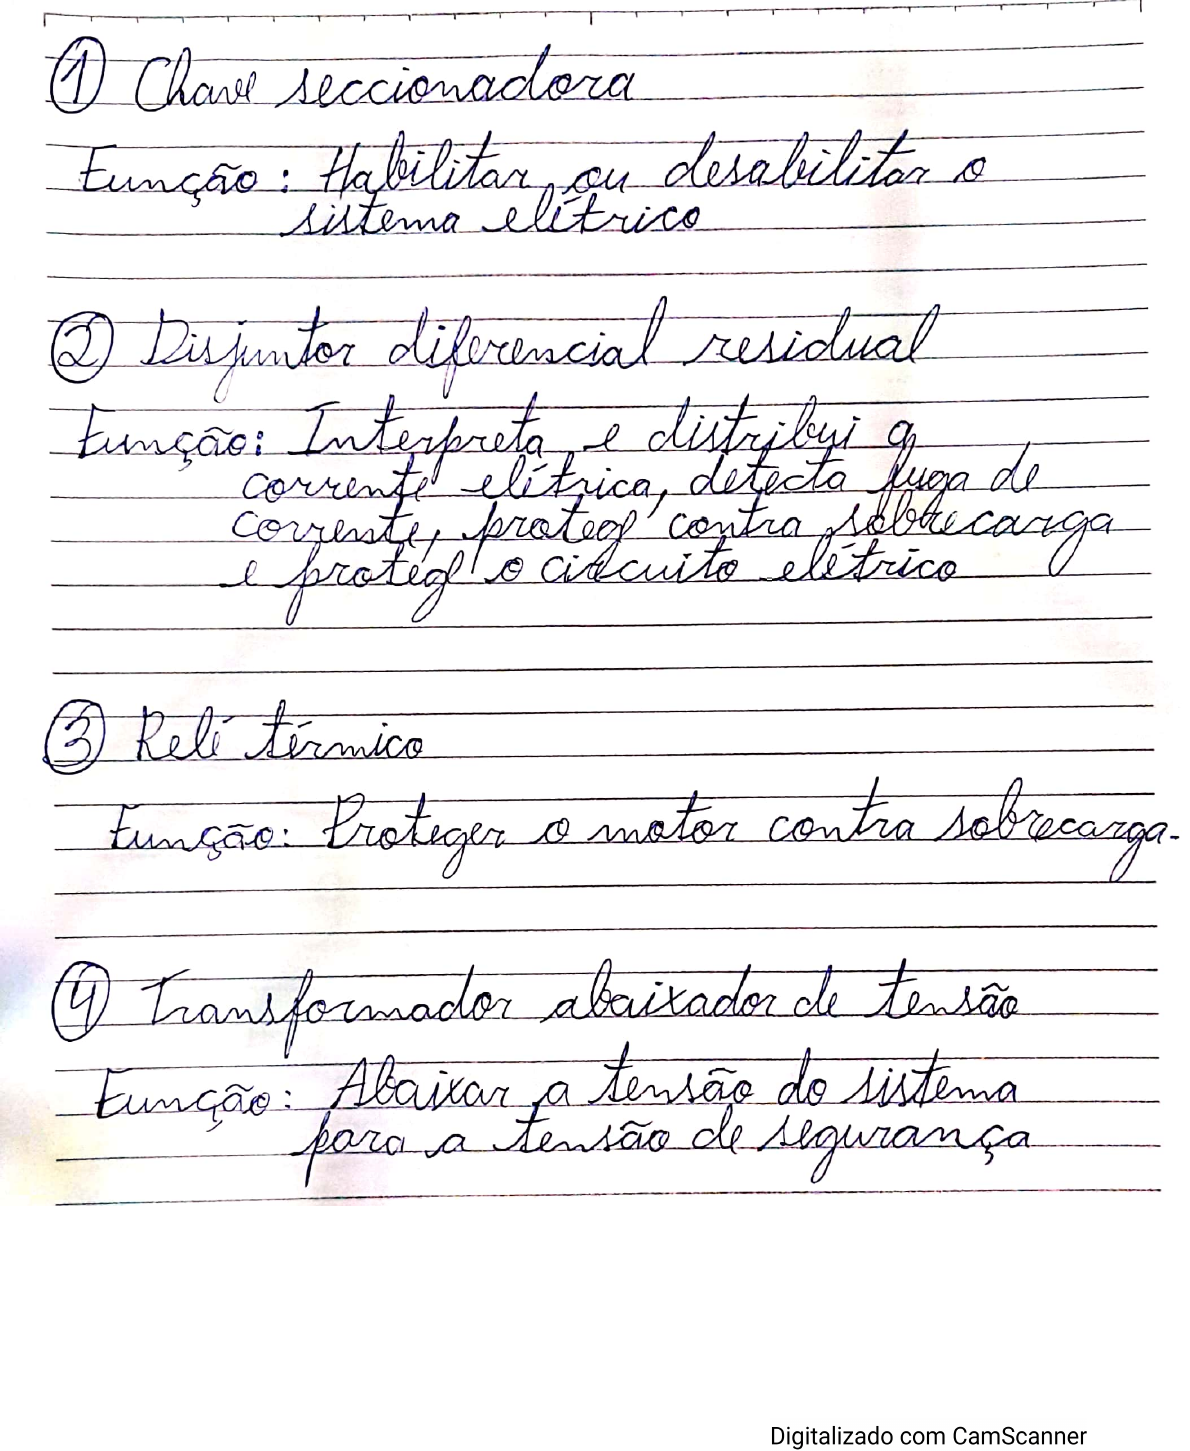 ① Chave seccionadora
Função: Habilitar ou desabilitar o
sistema elétrico
② Disjuntor diferencial residual
Função: Interpreta e distribui a
corrente elétrica, detecta fuga de
corrente, protege contra sobrecarga
e protege o circuito elétrico
③ Relé térmico
Função: Proteger o motor contra sobrecarga.
④ Transformador abaixador de tensão
Função: Abaixar a tensão do sistema
para a tensão de segurança
Digitalizado com CamScanner